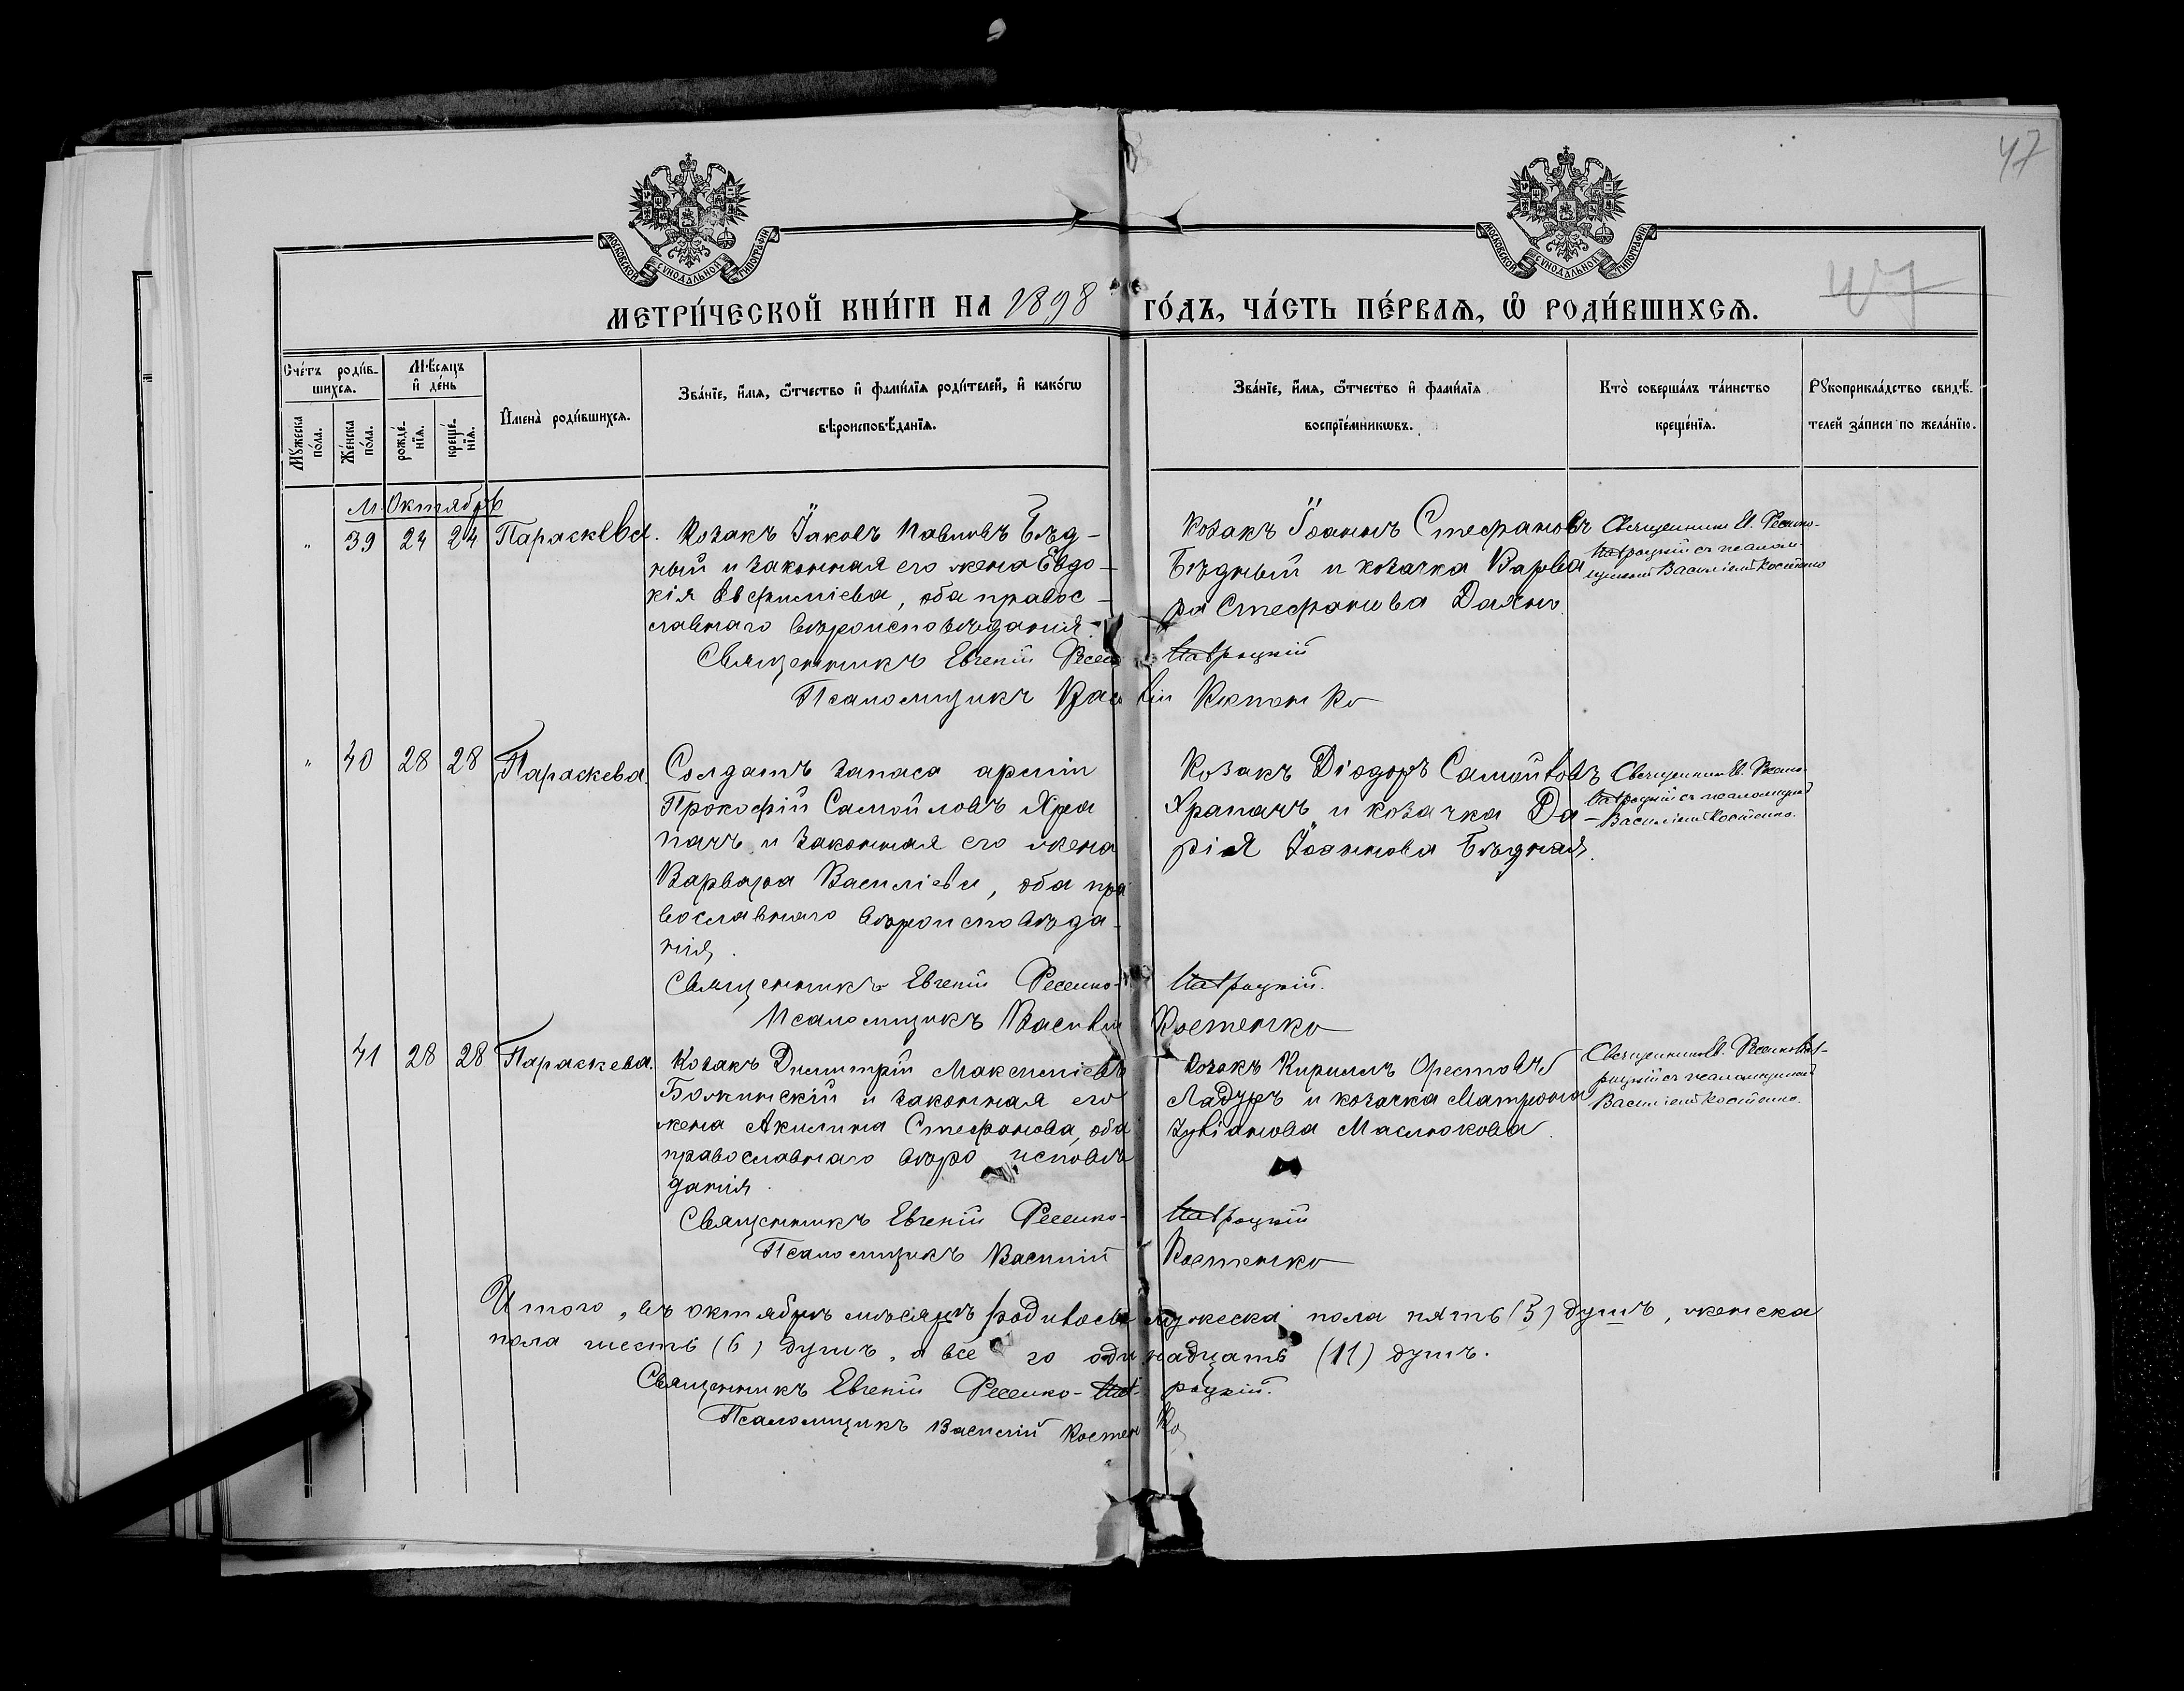 47
47
МОСКОВСКОЙ СѴНОДАЛЬНОЙ ТИПОГРАФІИ
МОСКОВСКОЙ СѴНОДАЛЬНОЙ ТИПОГРАФІИ
МЕТРИ́ЧЕСКОЙ КНИ́ГИ НА 1898 ГО́ДЪ, ЧА́СТЬ ПЕ́РВАѦ, Ѡ҆ РОДИ́ВШИХСѦ.
Сче́тъ роди́в-
шихсѧ.
Мꙋжеска по́ла.
Же́нска по́ла.
Мѣ́сѧцъ
и҆ де́нь
рожде́-
нїѧ.
креще́-
нїѧ.
И҆мена̀ роди́вшихсѧ.
Зва́нїе, и҆́мѧ, ѻ҆́тчество и҆ фами́лїѧ роди́телей, и҆ како́гѡ
вѣроисповѣ́данїѧ.
Зва́нїе, и҆́мѧ, ѻ҆́тчество и҆ фами́лїѧ
воспрїе́мникѡвъ.
Кто̀ соверша́лъ та́инство
креще́нїѧ.
Рꙋкоприкла́дство свидѣ́-
телей за́писи по жела́нїю.
М. Октябрь
" 39 24 24 Параскева.
Козакъ Іаковъ Павловъ Бѣд-
ный и законная его жена Евдо-
кія Евфиміева, оба правос-
славнаго вѣроисповѣданія.
Козакъ Іоаннъ Стефановъ
Бѣдный и козачка Варва
ра Стефанова
Священникъ Е. Фесенко-
Навроцкій съ псалом-
щикомъ Василіемъ Костенко
Священникъ Евгеній Фесенко-Навроцкій
Псаломщикъ Василій Костенко
" 40 28 28 Параскева.
Солдатъ запаса арміи
Прокофій Самойловъ Хра
пачъ и законная его жена
Варвара Василіева, оба пра
вославнаго вѣроисповѣда-
нія.
Козакъ Діодоръ Самойловъ
Храпачъ и козачка Да-
рія Іоаннова Бѣдная.
Священникъ Е. Фесенко-
Навроцкій съ псаломщикомъ
Василіемъ Костенко.
Священникъ Евгеній Фесенко-Навроцкій.
Псаломщикъ Василій Костенко
41 28 28 Параскева.
Козакъ Димитрій Максиміевъ
Божинскій и законная его
жена Акилина Стефанова, оба
православнаго вѣро исповѣ
данія.
Козакъ Кириллъ Орестовъ
Ладуръ и козачка Матрона
Маслюкова.
Священникъ Е. Фесенко-Нав-
роцкій съ псаломщикомъ
Василіемъ Костенко.
Священникъ Евгеній Фесенко-Навроцкій
Псаломщикъ Василій Костенко
Итого, въ октябрѣ мѣсяцѣ родилось мужеска пола пять (5) душъ, женска
пола шесть (6) душъ, а все го одинадцать (11) душъ.
Священникъ Евгеній Фесенко-Навроцкій.
Псаломщикъ Василій Костенко